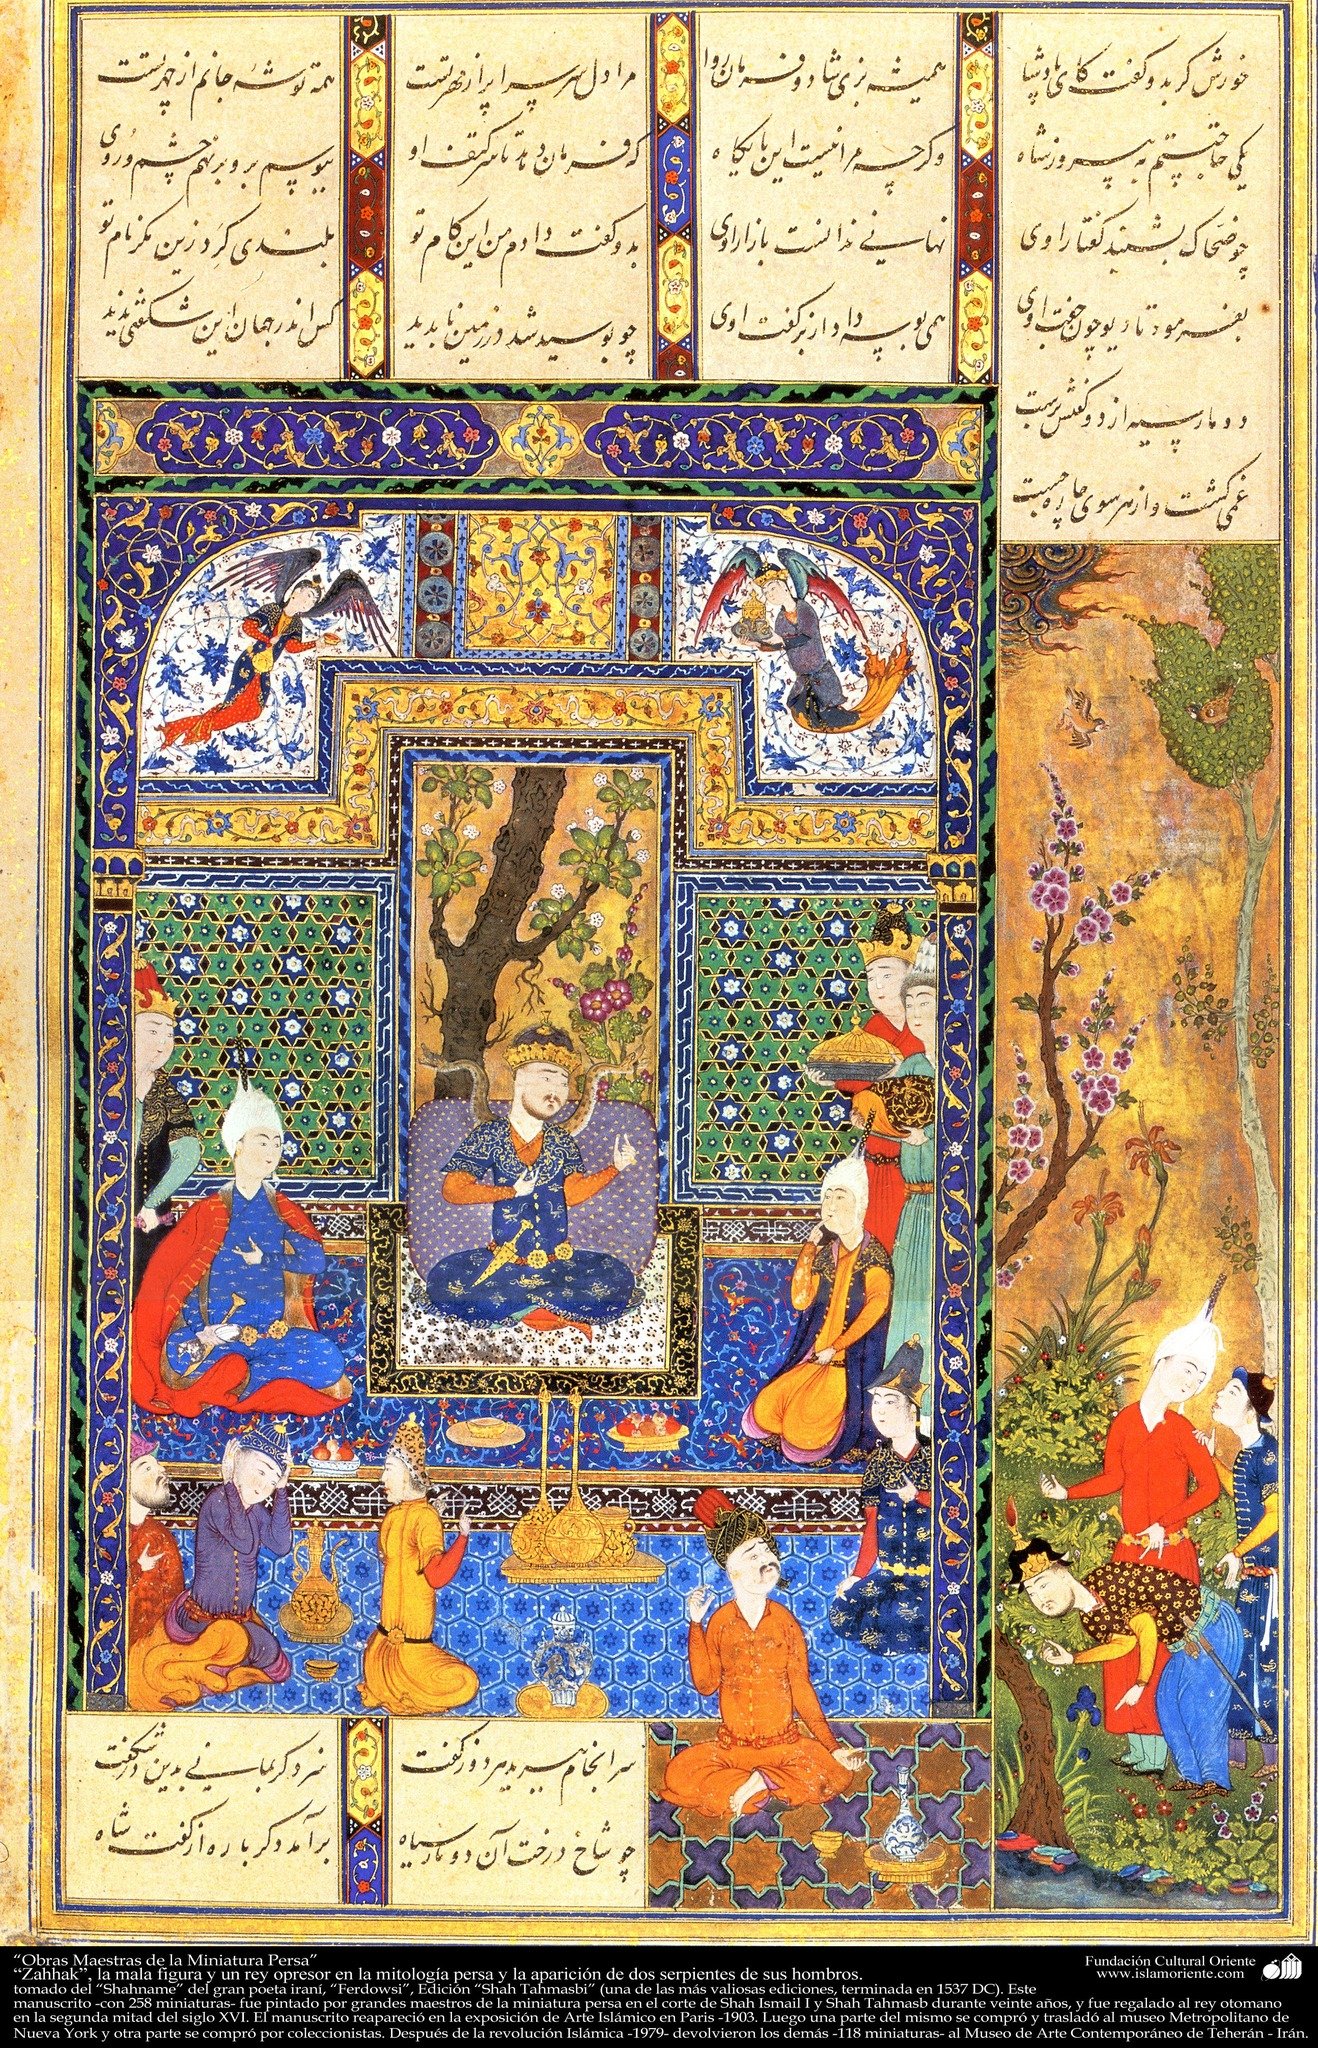 خورش گر بدو گفت کای پادشا همیشه بزی شاد و فرمان روا مرا دل سراسر پر از مهر تست همه توشه جانم از چهر تست
یکی حاجتستم به پیروز شاه وگرچه مرا نیست این پایگاه که فرمان دهد تا سر کتف او ببوسم برو بر نهم چشم و روی
چو ضحاک بشنید گفتار اوی نهانی ندانست بازار اوی بدو گفت دادم من این کام تو بلندی گرد زین مگر نام تو
بفرمود تا دیو چون جفت اوی همی بوسه داد از بر کفت اوی چو بوسید شد در زمین ناپدید کس اندر جهان این شگفتی ندید
دو مار سیه از دو کتفش برست
غمی گشت و از هر سوی چاره جست
سرانجام ببرید هر دو ز کفت سزد گر بمانی بدین در شگفت
چو شاخ درخت آن دو مار سیاه برآمد دگر باره از کفت شاه
“Obras Maestras de la Miniatura Persa”
“Zahhak”, la mala figura y un rey opresor en la mitología persa y la aparición de dos serpientes de sus hombros.
tomado del “Shahname” del gran poeta iraní, “Ferdowsi”, Edición “Shah Tahmasbi” (una de las más valiosas ediciones, terminada en 1537 DC). Este
manuscrito -con 258 miniaturas- fue pintado por grandes maestros de la miniatura persa en el corte de Shah Ismail I y Shah Tahmasb durante veinte años, y fue regalado al rey otomano
en la segunda mitad del siglo XVI. El manuscrito reapareció en la exposición de Arte Islámico en Paris -1903. Luego una parte del mismo se compró y trasladó al museo Metropolitano de
Nueva York y otra parte se compró por coleccionistas. Después de la revolución Islámica -1979- devolvieron los demás -118 miniaturas- al Museo de Arte Contemporáneo de Teherán - Irán.
Fundación Cultural Oriente
www.islamoriente.com